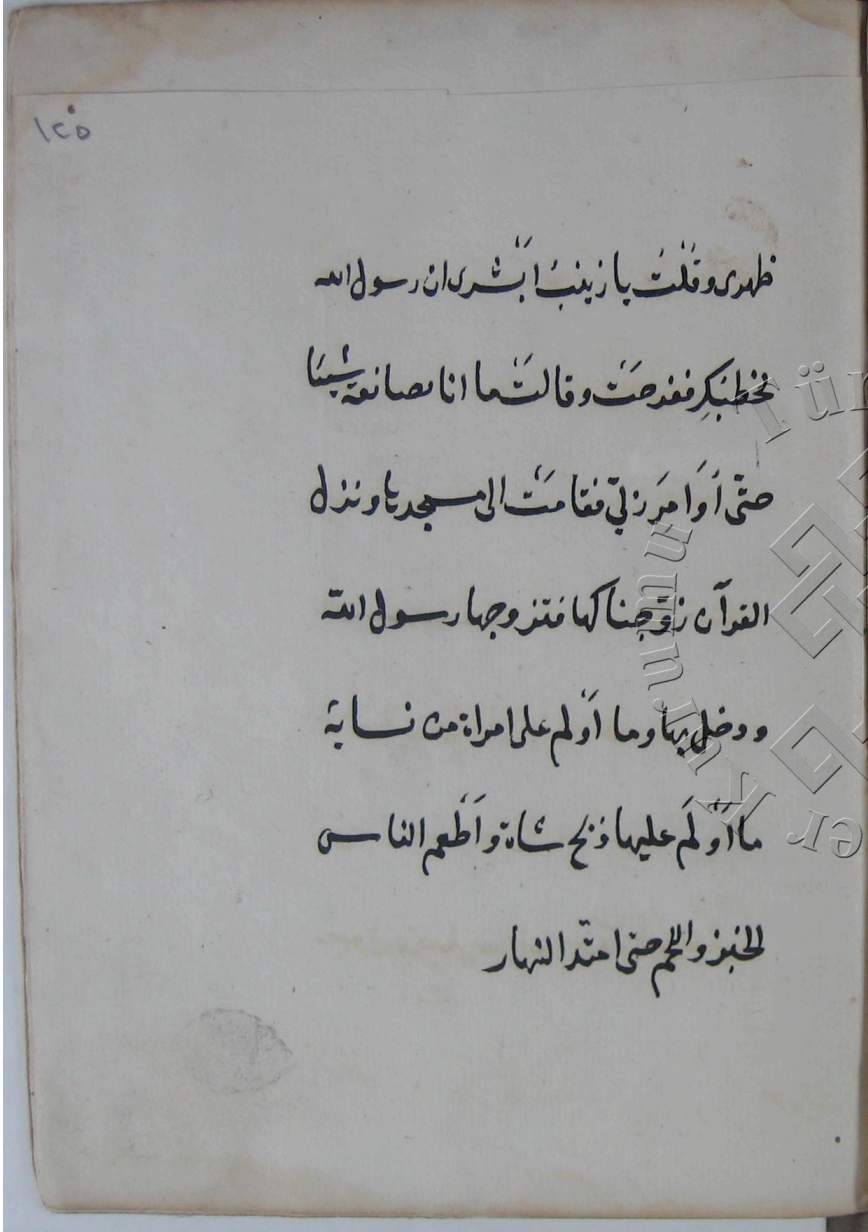 ١٢٥
ظهرى وقلت يا زينب ابشرى ان رسول الله
يخطبك ففرحت وقالت ما انا بصانعة شيئا
حتى أوامر ربى فقامت الى مسجدها ونزل
القرآن زوّجناكها فتزوجها رسول الله
ودخل بها وما أولم على امراة من نسايه
ما أولم عليها ذبح شاة وأطعم الناس
الخبز واللحم حتى امتد النهار
Tür